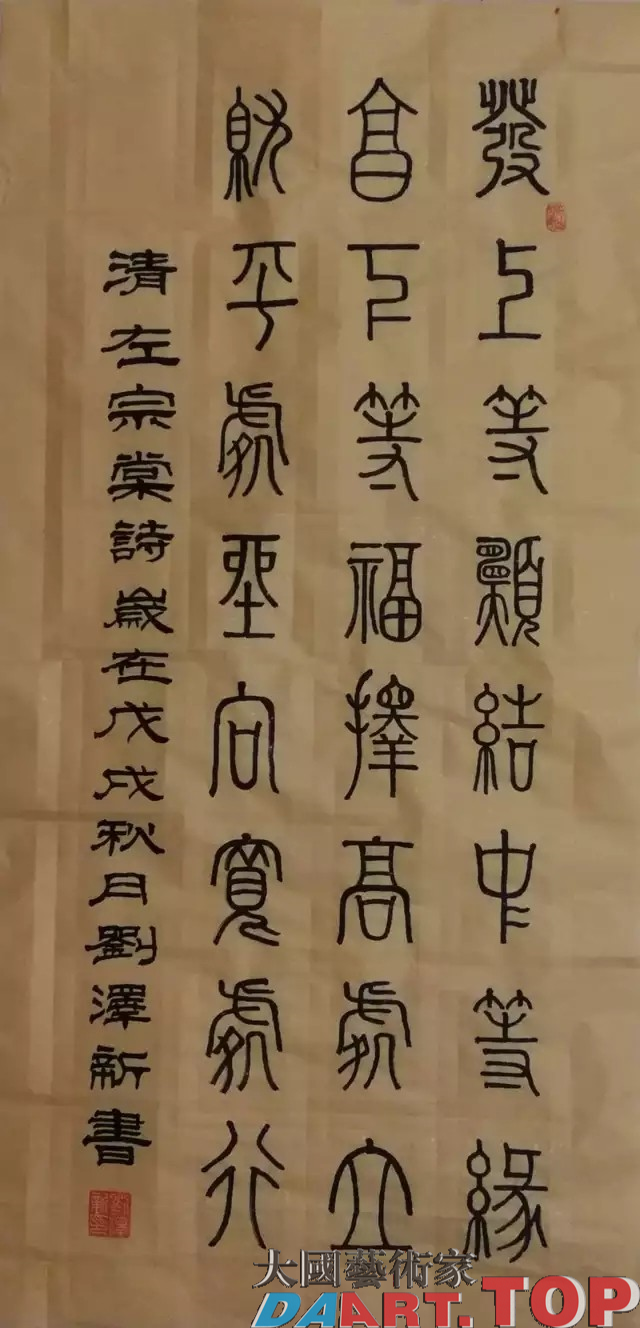 發上等願結中等緣
享下等福擇高處立
就平處坐向寬處行
清左宗棠詩歲在戊戌秋月劉澤新書
大國藝術家
DAART.TOP